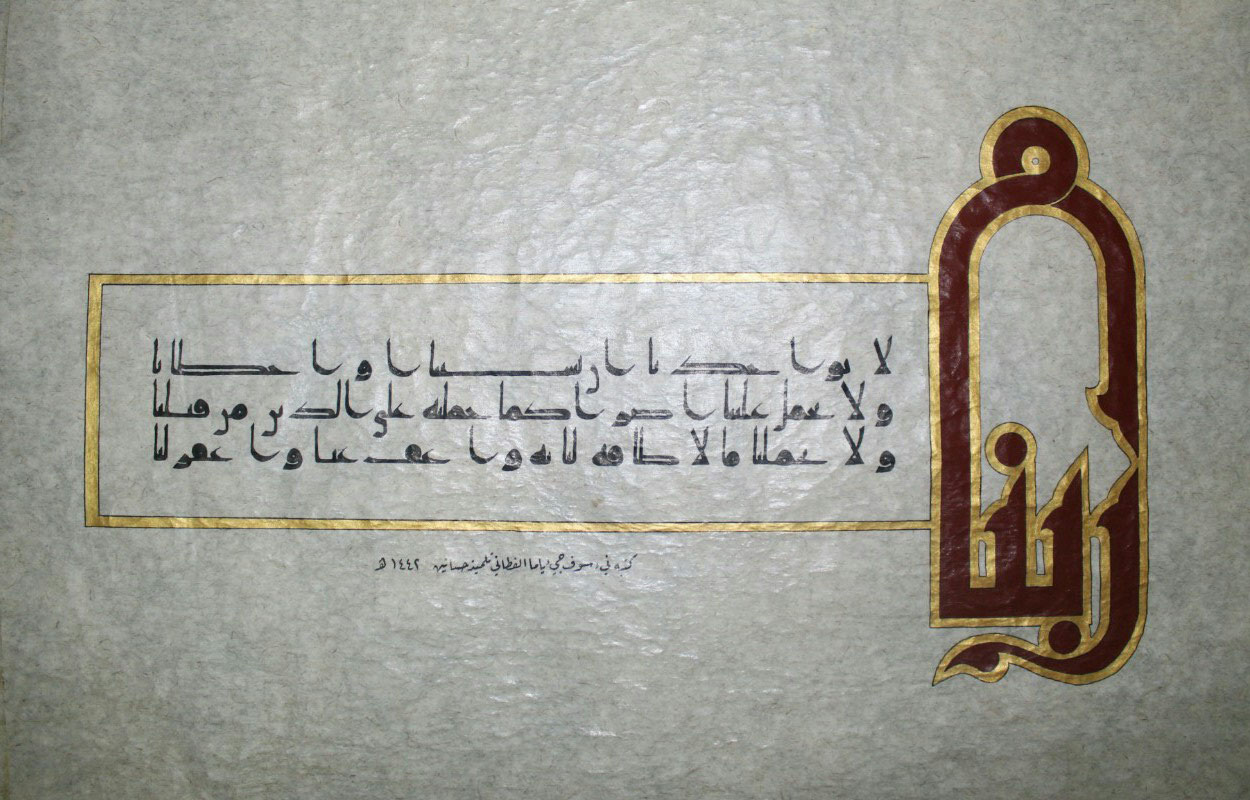 ربنا
لا تواخذنا ان نسينا او اخطانا
ولا تحمل علينا اصرا كما حملته على الذين من قبلنا
ولا تحملنا ما لا طاقة لنا به واعف عنا واغفر لنا
كتبه الفطاني تلميذ حسانين ١٤٤٢ هـ